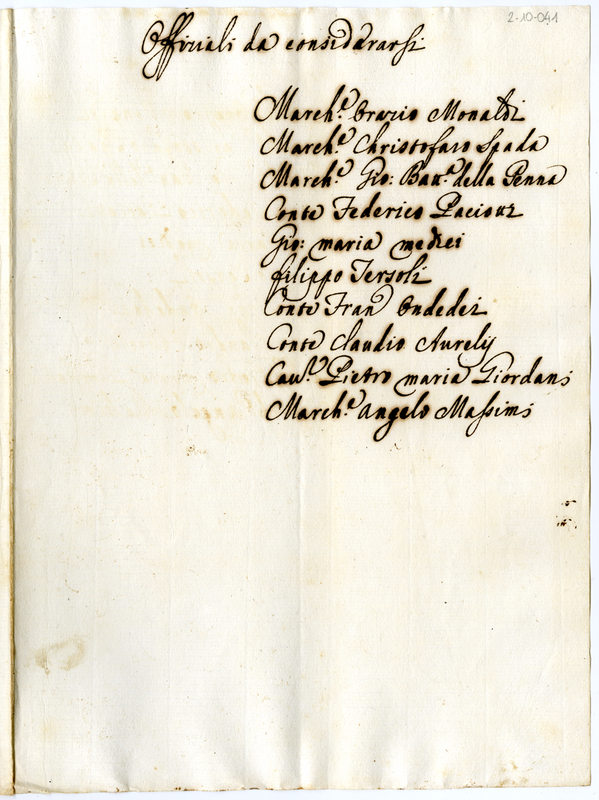 2-10-041
Officiali da considerarsi
March.e Orazio Monaldi
March.e Christofaro Spada
March.e Gio: Batt.a della Penna
Conte Federico Paciotti
Gio: maria medici
filippo Tersoli
Conte Fran.o Ondedei
Conte Claudio Aurelij
Cau.r Pietro maria Giordani
March.e Angelo Massimi